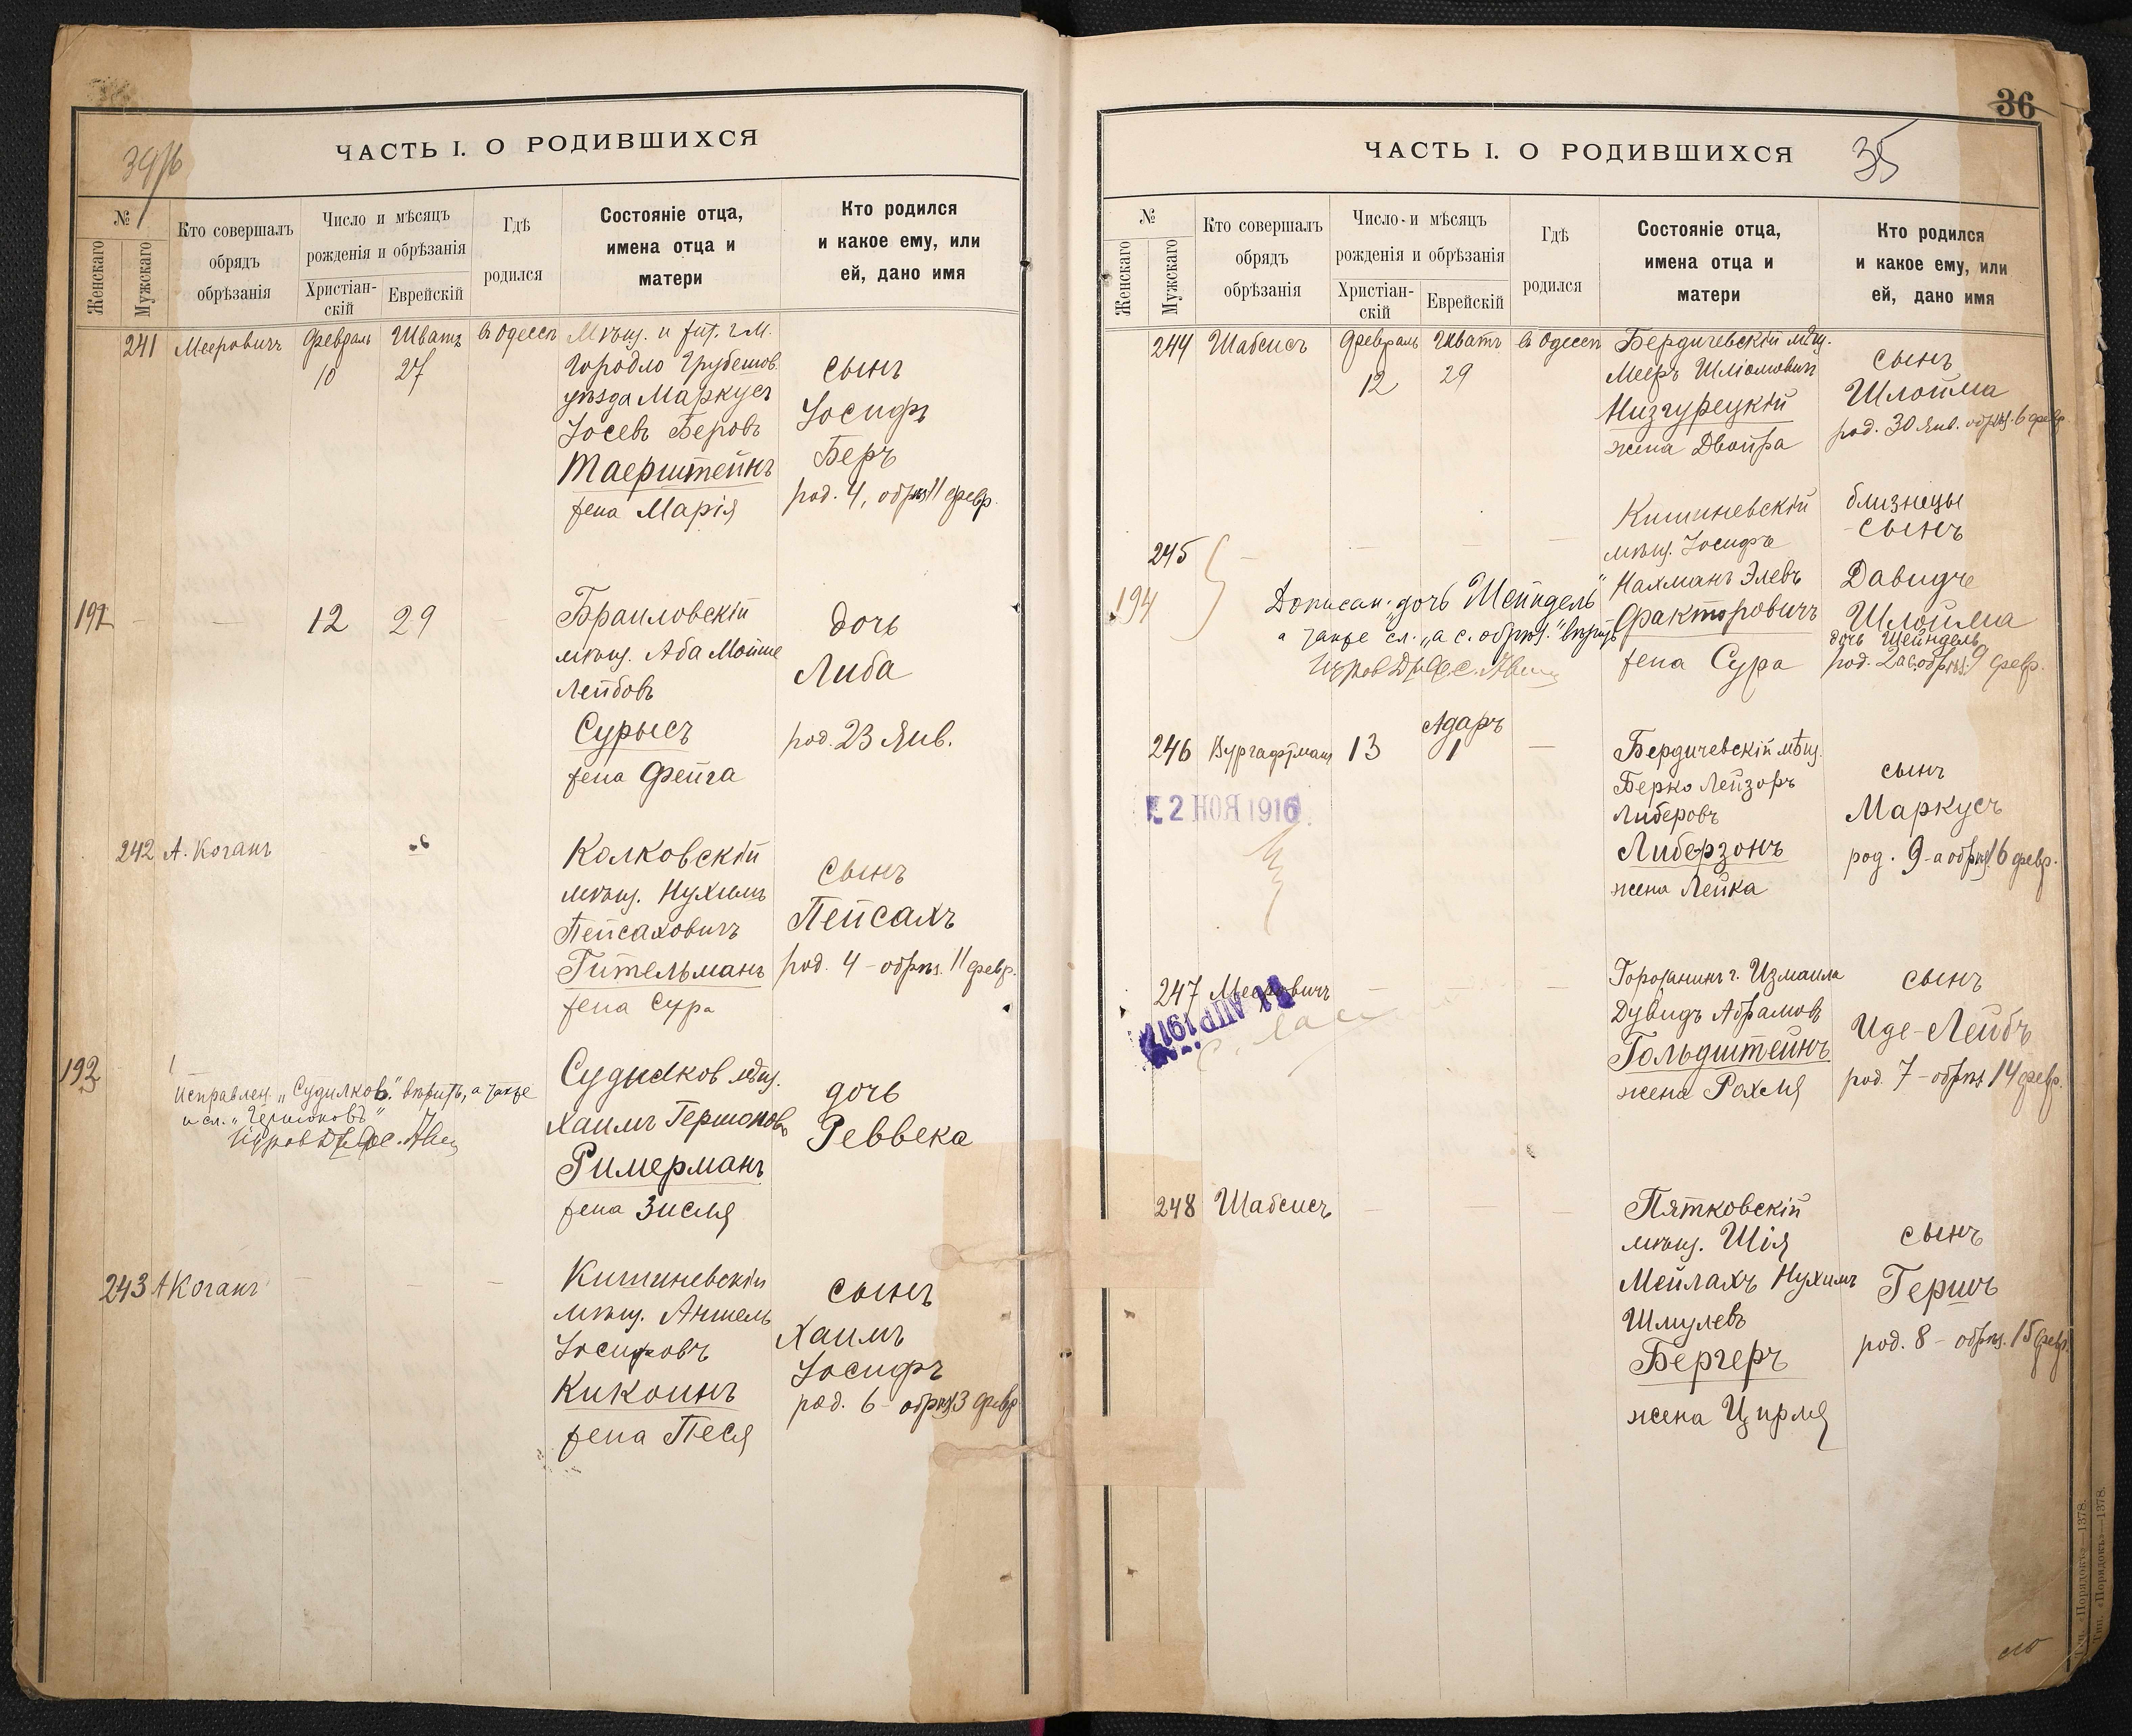 ЧАСТЬ I. О РОДИВШИХСЯ
№
Женскаго
Мужскаго
Кто совершалъ
обрядъ
обрѣзанія
Число и мѣсяцъ
рожденія и обрѣзанія
Христіан-
скій
Еврейскій
Гдѣ
родился
Состояніе отца,
имена отца и
матери
Кто родился
и какое ему, или
ей, дано имя
241 Мееровичъ Февраль Шватъ въ Одессѣ
10 27
Городло Грубешов.
уѣзда Маркусъ
Іосевъ Беровъ
Таерштейнъ
жена Марія
сынъ
Іосифъ
Беръ
род. 4, обрѣз. 11 февр.
12 29
Браиловскій
мѣщ. Аба Мойше
Лейбовъ
Сурысъ
жена Фейга
дочь
Либа
род. 23 Янв.
242 А. Коганъ
Колковскій
мѣщ. Нухимъ
Пейсаховичъ
Гительманъ
жена Сура
сынъ
Пейсахъ
род. 4 - обрѣз. 11 февр.
192
Исправлен. „Судилков." вѣрить, а также
и сл. „Гершоновъ"
Судилков мѣщ.
Хаимъ Гершонов
Римерманъ
жена Зисля
дочь
Реввека
243 А Коганъ
Кишиневскій
мѣщ. Аншель
Іосифовъ
Кикоинъ
жена Песя
сынъ
Хаимъ
Іосифъ
род. 6 - обрѣз. 13 февр.
36
ЧАСТЬ I. О РОДИВШИХСЯ
35
№
Женскаго
Мужскаго
Кто совершалъ
обрядъ
обрѣзанія
Число и мѣсяцъ
рожденія и обрѣзанія
Христіан-
скій
Еврейскій
Гдѣ
родился
Состояніе отца,
имена отца и
матери
Кто родился
и какое ему, или
ей, дано имя
244 Шабсисъ Февраль Шватъ въ Одессѣ
12 29
Бердичевскій мѣщ.
Мееръ Шліомович
Низгурецкій
жена Двойра
сынъ
Шлойма
род. 30 Янв. обрѣз. 6 февр.
245
194
Дописан. „дочь Шейндель"
а также сл. „а с. обрѣз." вѣрить
Кишиневскій
мѣщ. Іосифъ
Нахманъ Элевъ
Факторовичъ
жена Сура
близнецы
- сынъ
Давидче
Шлойма
дочь Шейндель
род. 2 а с. обрѣз. 9 февр.
Адаръ
246 Вургафтман 13 1
2 НОЯ 1916
Бердичевскій мѣщ.
Берко Лейзоръ
Либеровъ
Либерзонъ
жена Лейка
сынъ
Маркусъ
род. 9 - а обрѣз. 16 февр.
247 Мееровичъ
АПР 1917
Горожанинъ г. Измаила
Дувидъ Абрамов
Гольдштейнъ
жена Рахля
сынъ
Иде-Лейбъ
род. 7 - обрѣз. 14 февр.
248 Шабсисъ
Пятковскій
мѣщ. Шія
Мейлахъ Нухимъ
Шмулевъ
Бергеръ
жена Цирля
сынъ
Гершъ
род. 8 - обрѣз. 15 февр.
Тип. «Порядокъ»—1378.
Тип. «Порядокъ»—1378.